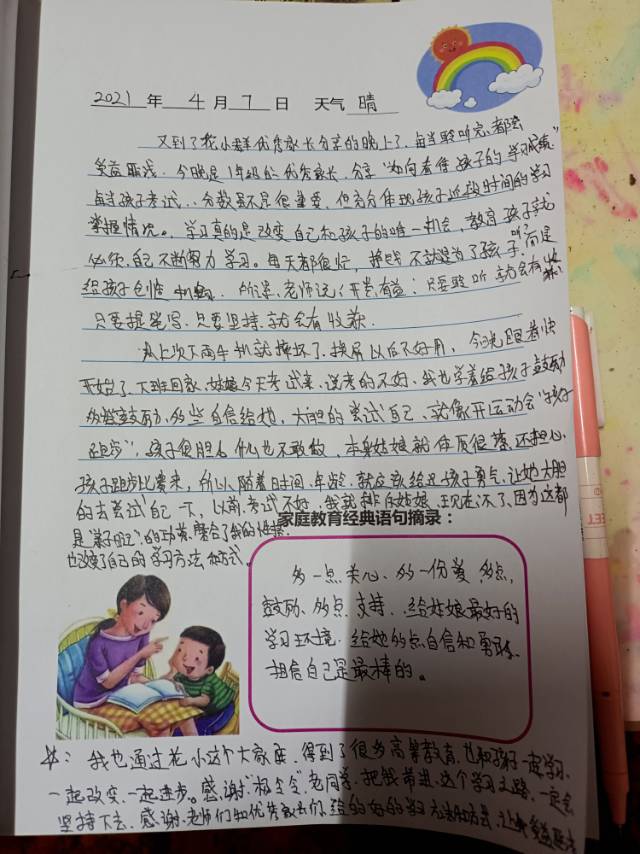 2021 年 4 月 7 日 天气 晴
又到了花小群优秀家长分享的晚上了,每当聆听完,都会
受益匪浅。今晚是1年级的优秀家长,分享"如何看待孩子的学习成绩"
每当孩子考试、分数虽不是很重要,但充分体现孩子近段时间的学习
掌握情况。学习真的是改变自己和孩子的唯一机会,教育孩子就
必须自己不断努力学习。每天都很忙,挣钱不就是为了孩子,而是
给孩子创造 所以老师说:开卷有益:只要聆听就会有收获
只要提笔写,只要坚持,就会有收获.
从上次下雨手机就摔坏了,换屏以后不好用,今晚
开始了,下班回家,姑娘今天考试来,说考的不好,我也学着给孩子鼓励
多些鼓励,多些自信给她,大胆的尝试自己,就像开运动会"孩子
跑步",孩子很胆小什么也不敢做,本身姑娘就体质很差,还担心
孩子跑步比赛来,所以随着时间、年龄,就应该给足孩子勇气,让她大胆
的去尝试自己一下,以前考试不好,我就 姑娘,现在不了,因为这都
是"弟子班"的功劳,磨合了我的性格.
也改变了自己的学习方法和方式。
家庭教育经典语句摘录:
多一点关心、多一份爱 多点,
鼓励、多点支持、给姑娘最好的
学习环境,给她多点自信和勇敢.
相信自己是最棒的。
我也通过花小这个大家庭,得到了很多高等教育,也和孩子一起学习,
一起改变,一起进步。感谢 老同学,把我带进这个学习之路,一定会
坚持下去,感谢老师们和优秀家长们,给的好的学习方法和方案,让我受益匪浅